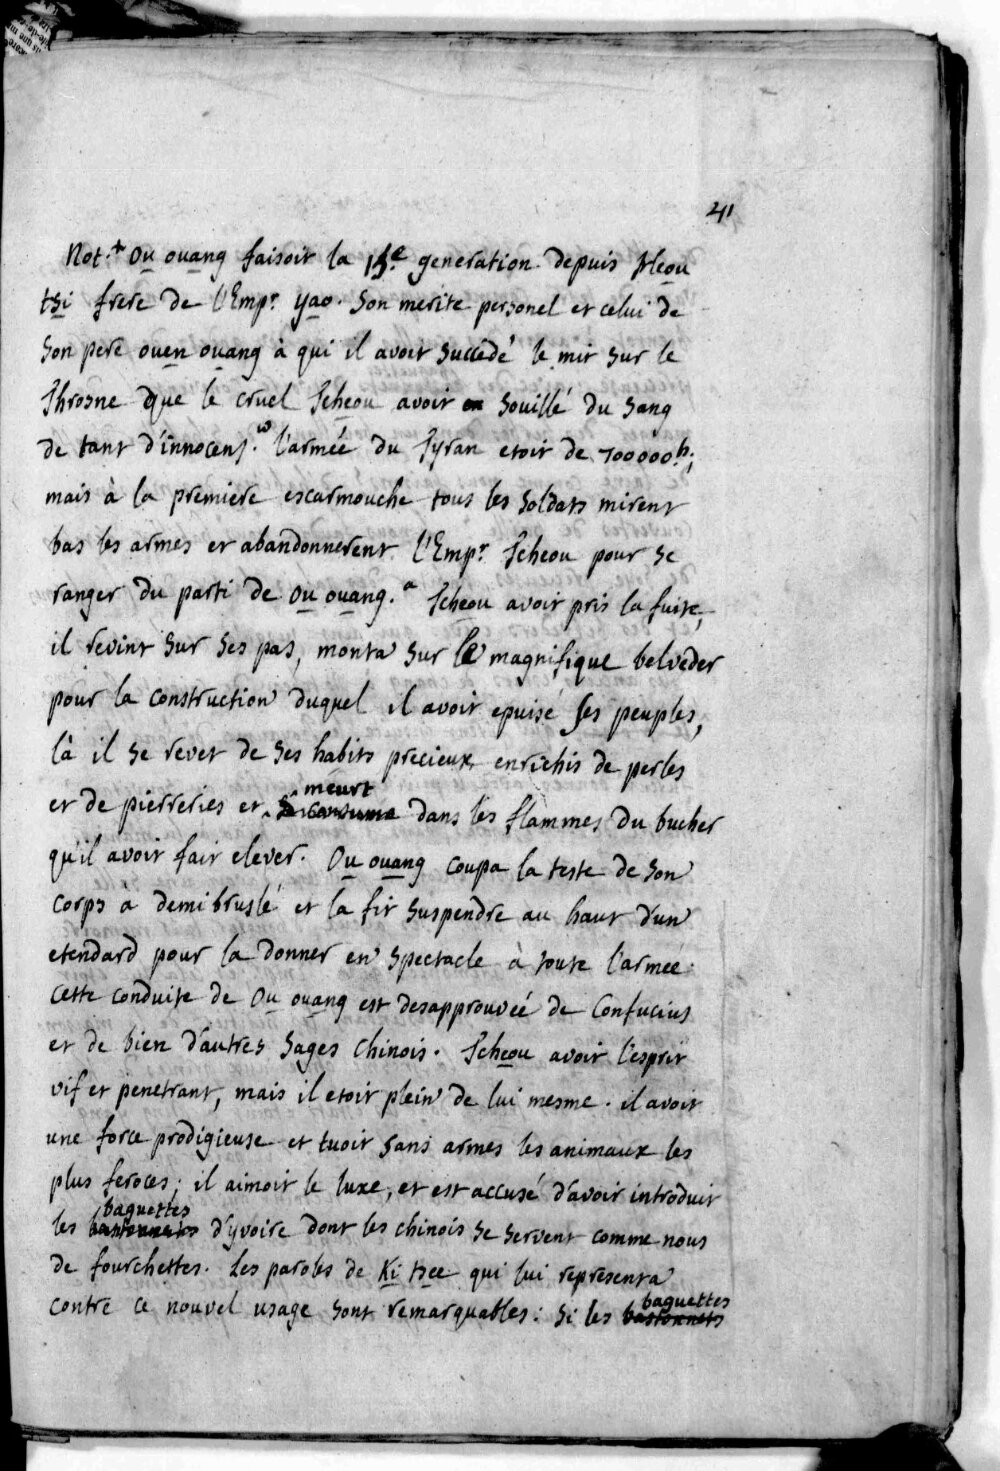 41
Not. Ou ouang faisoit la 15.e generation depuis Heou
tsi frere de l'Emp.r yao. Son merite personel et celui de
Son pere ouen ouang à qui il avoit succedé le mit sur le
Throsne que le cruel Tcheou avoit souillé du sang
de tant d'innocens. l'armée du Tyran etoit de 700000 h.;
mais à la premiere escarmouche tous les soldats mirent
bas les armes et abandonnerent l'Emp.r Tcheou pour se
ranger du parti de Ou ouang. Tcheou avoit pris la fuite,
il revint sur ses pas, monta sur le magnifique belveder
pour la construction duquel il avoit epuisé ses peuples,
là il se revet de ses habits precieux enrichis de perles
et de pierreries et se consume meurt dans les flammes du bucher
qu'il avoit fait elever. Ou ouang coupa la teste de son
corps à demi bruslé et la fit suspendre au haut d'un
etendard pour la donner en spectacle à toute l'armée.
cette conduite de Ou ouang est desapprouvée de Confucius
et de bien d'autres sages chinois. Tcheou avoit l'esprit
vif et penetrant, mais il etoit plein de lui mesme. il avoit
une force prodigieuse et tuoit sans armes les animaux les
plus feroces; il aimoit le luxe, et est accusé d'avoir introduit
les bastonnets baguettes d'yvoire dont les chinois se servent comme nous
de fourchettes. Les paroles de Ki tsee qui lui representa
contre ce nouvel usage sont remarquables: Si les bastonnets baguettes